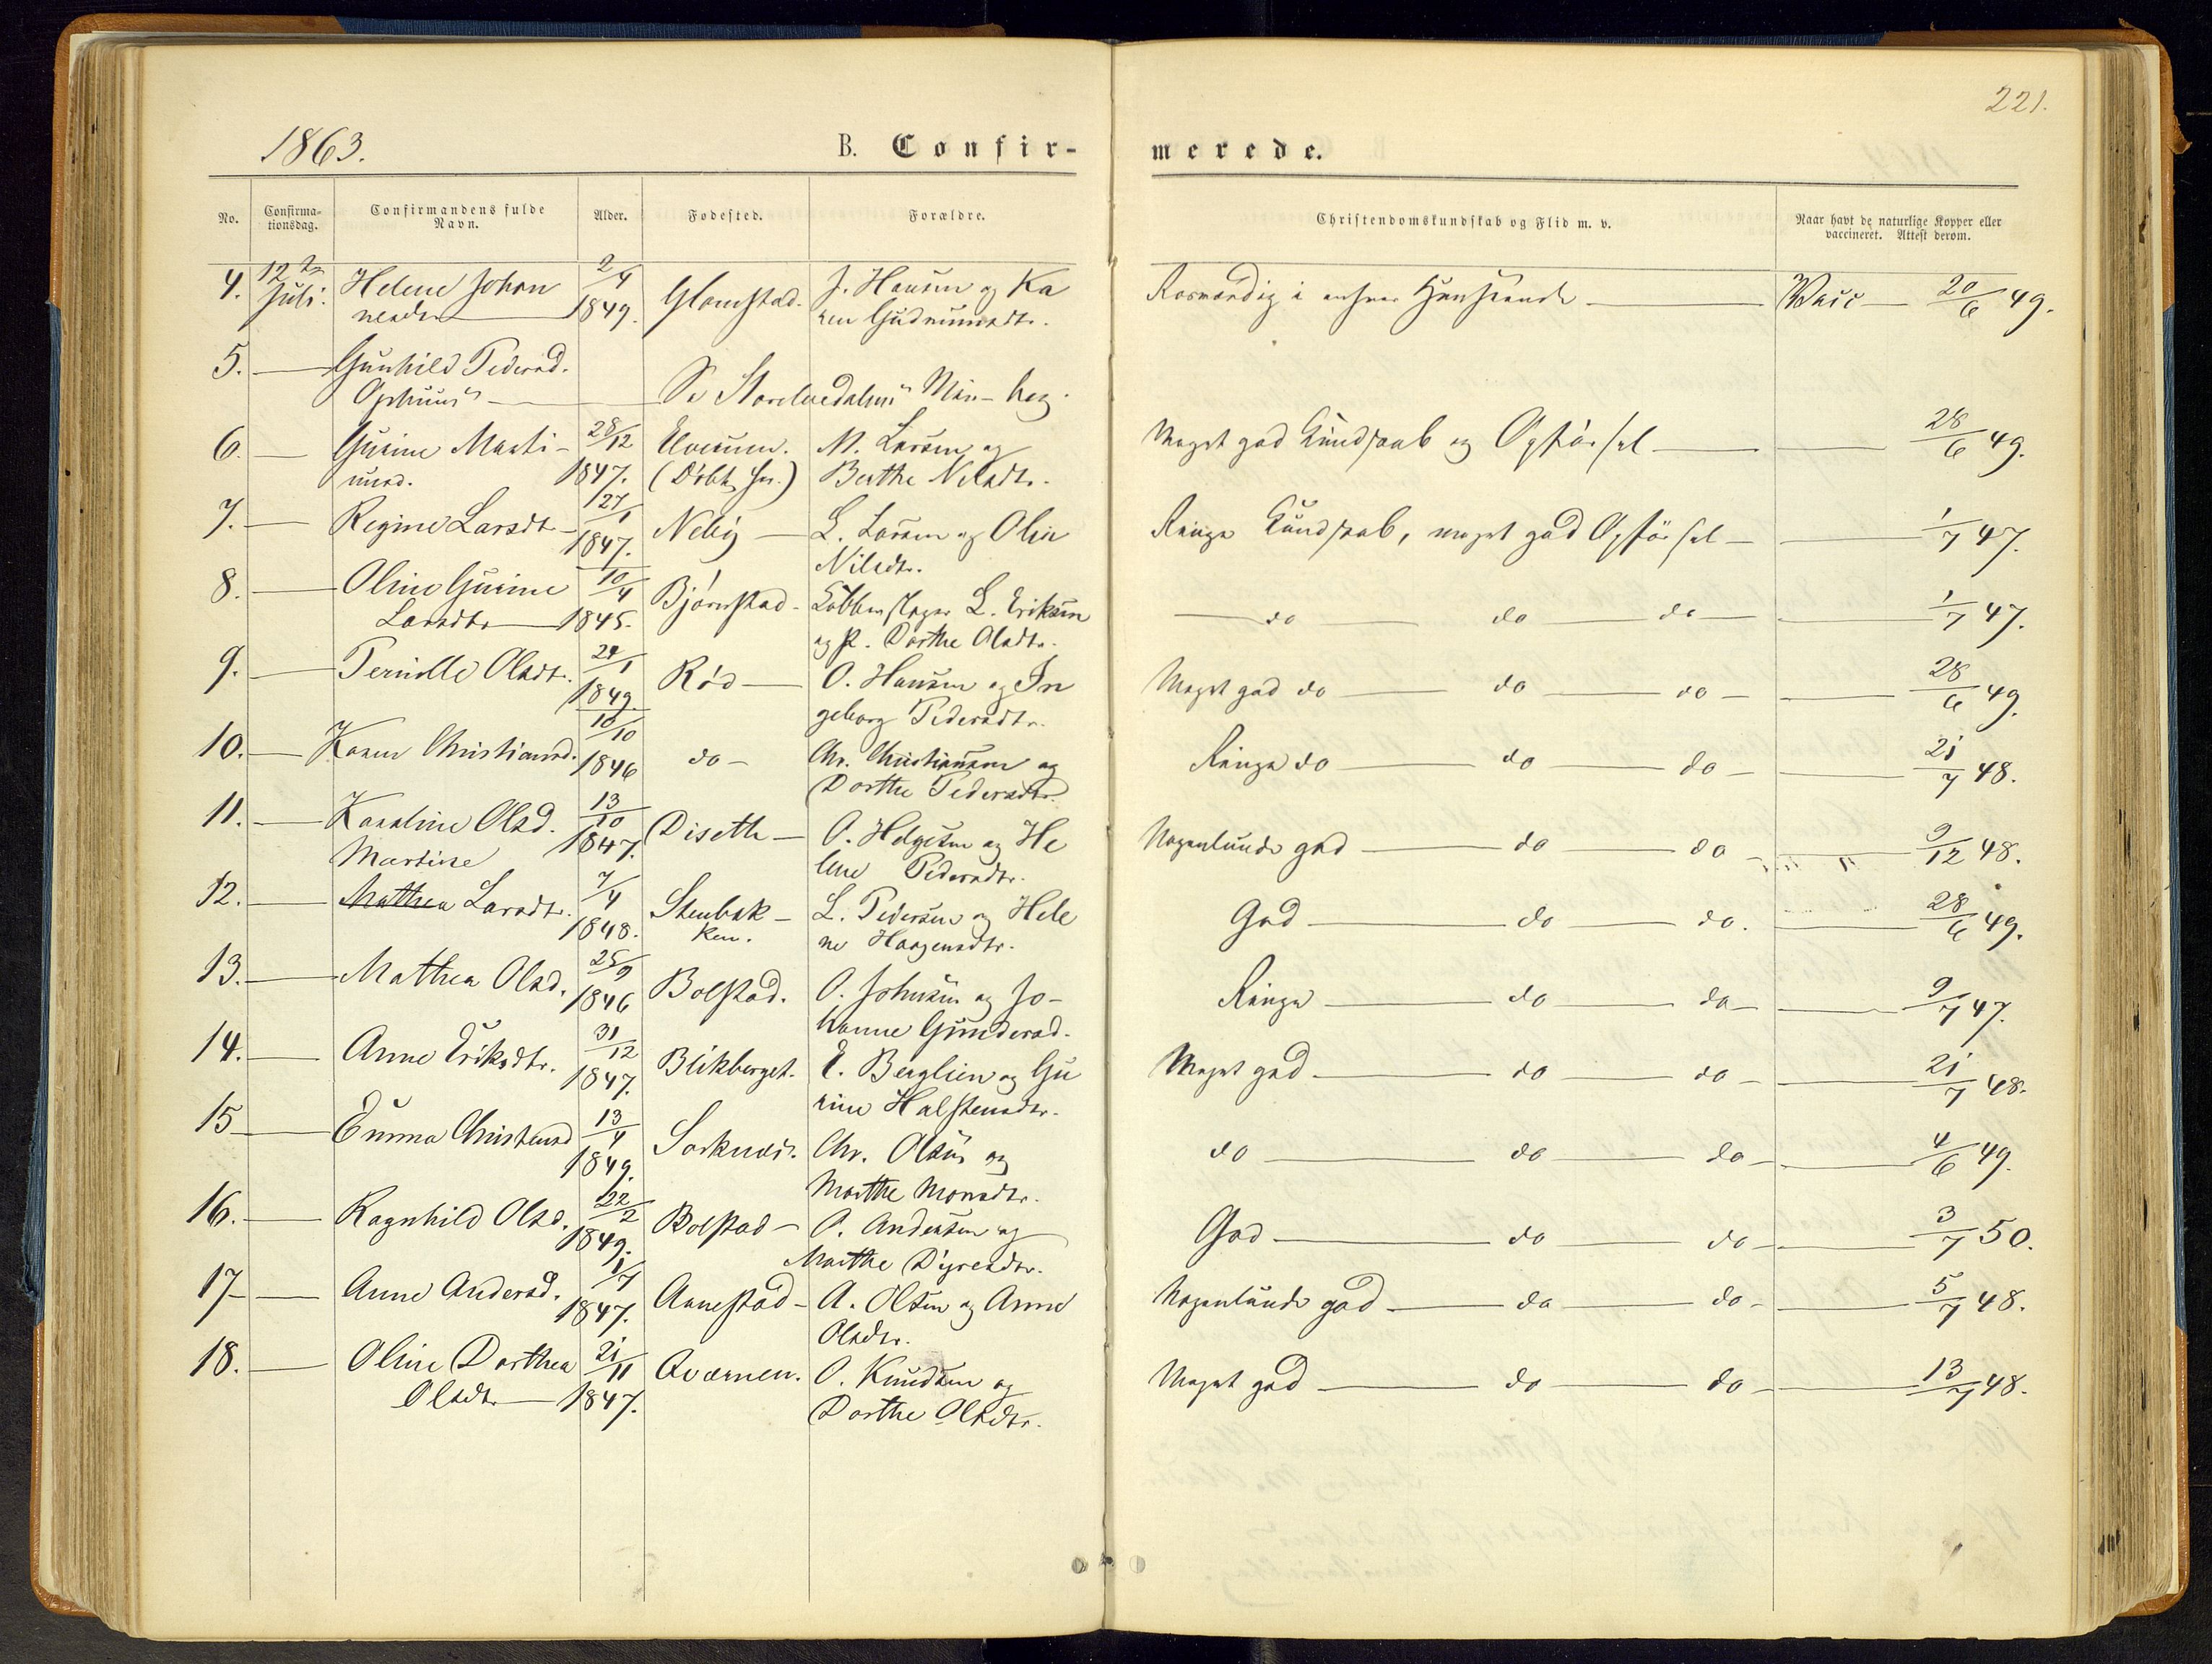 221.
1863.
B. Confir-
merede.
No.
Confirma-
tionsdag.
Confirmandens fulde
Navn.
Alder.
Fødested.
Forældre.
Christendomskundskab og Flid m. v.
Naar havt de naturlige Kopper eller
vaccineret. Attest derom.
4. 12te Helene Johan 2/4 Glomstad. J. Hansen og Ka Rosværdig i enhver Henseende Vacc 20/6 49.
Juli. nesdtr 1849. ren Gudmundsdtr.
5. Gunhild Pedersd.
Ophuus Se Storelvedalens Min- bog.
6. Gurine Marti- 28/12 Elverum. M. Larsen og Meget god Kundskab og Opførsel 28/6 49.
nusd. 1847. (Døbt her.) Berthe Nilsdtr.
7. Regine Larsdtr 27/1 Neby L. Larsen og Olea Ringe Kundskab, meget god Opførsel 1/7 47.
1847. Nilsdtr.
8. Oline Gurine 10/4 Bjørnstad Kobberslager L. Eriksen do do do 1/7 47.
Larsdtr 1845. og P. Dorthe Olsdtr.
9. Pernille Olsdtr. 24/1 Rød O. Hansen og In Meget god do do do 28/6 49.
1849. geborg Pedersdtr.
10. Karen Christiansd. 10/10 do Chr. Christiansen og Ringe do do do 21/7 48.
1846 Dorthe Pedersdtr.
11. Karoline Olsd. 13/10 Diseth O. Helgesen og He Nogenlunde god do do 9/12 48.
Martine 1847. lene Pedersdtr.
12. Mathea Larsdtr. 7/4 Stenbak- L. Pedersen og Hele God do do. 28/6 49.
1848. ken. ne Haagensdtr.
13. Mathea Olsd. 25/9 Bolstad. O. Johnsen og Jo- Ringe do do 9/7 47.
1846 hanne Gundersd.
14. Anne Eriksdtr. 31/12 Blikberget. E. Berglien og Gu Meget god do do 21/7 48.
1847. rine Halstensdtr.
15 Emma Christensd 13/4 Sorknæs. Chr. Olsen og do do do 4/6 49.
1849. Marthe Monsdtr.
16. Ragnhild Olsd. 22/2 Bolstad O. Andersen og God do do 3/7 50.
1849. Marthe Dyresdtr.
17 Anne Andersd. 1/7 Arnestad A. Olsen og Anne Nogenlunde god do do 5/7 48.
1847. Olsdtr.
18. Oline Dorthea 21/11 Qværnen. O. Knudsen og Meget god do do 13/7 48.
Olsdtr 1847. Dorthe Olsdtr.